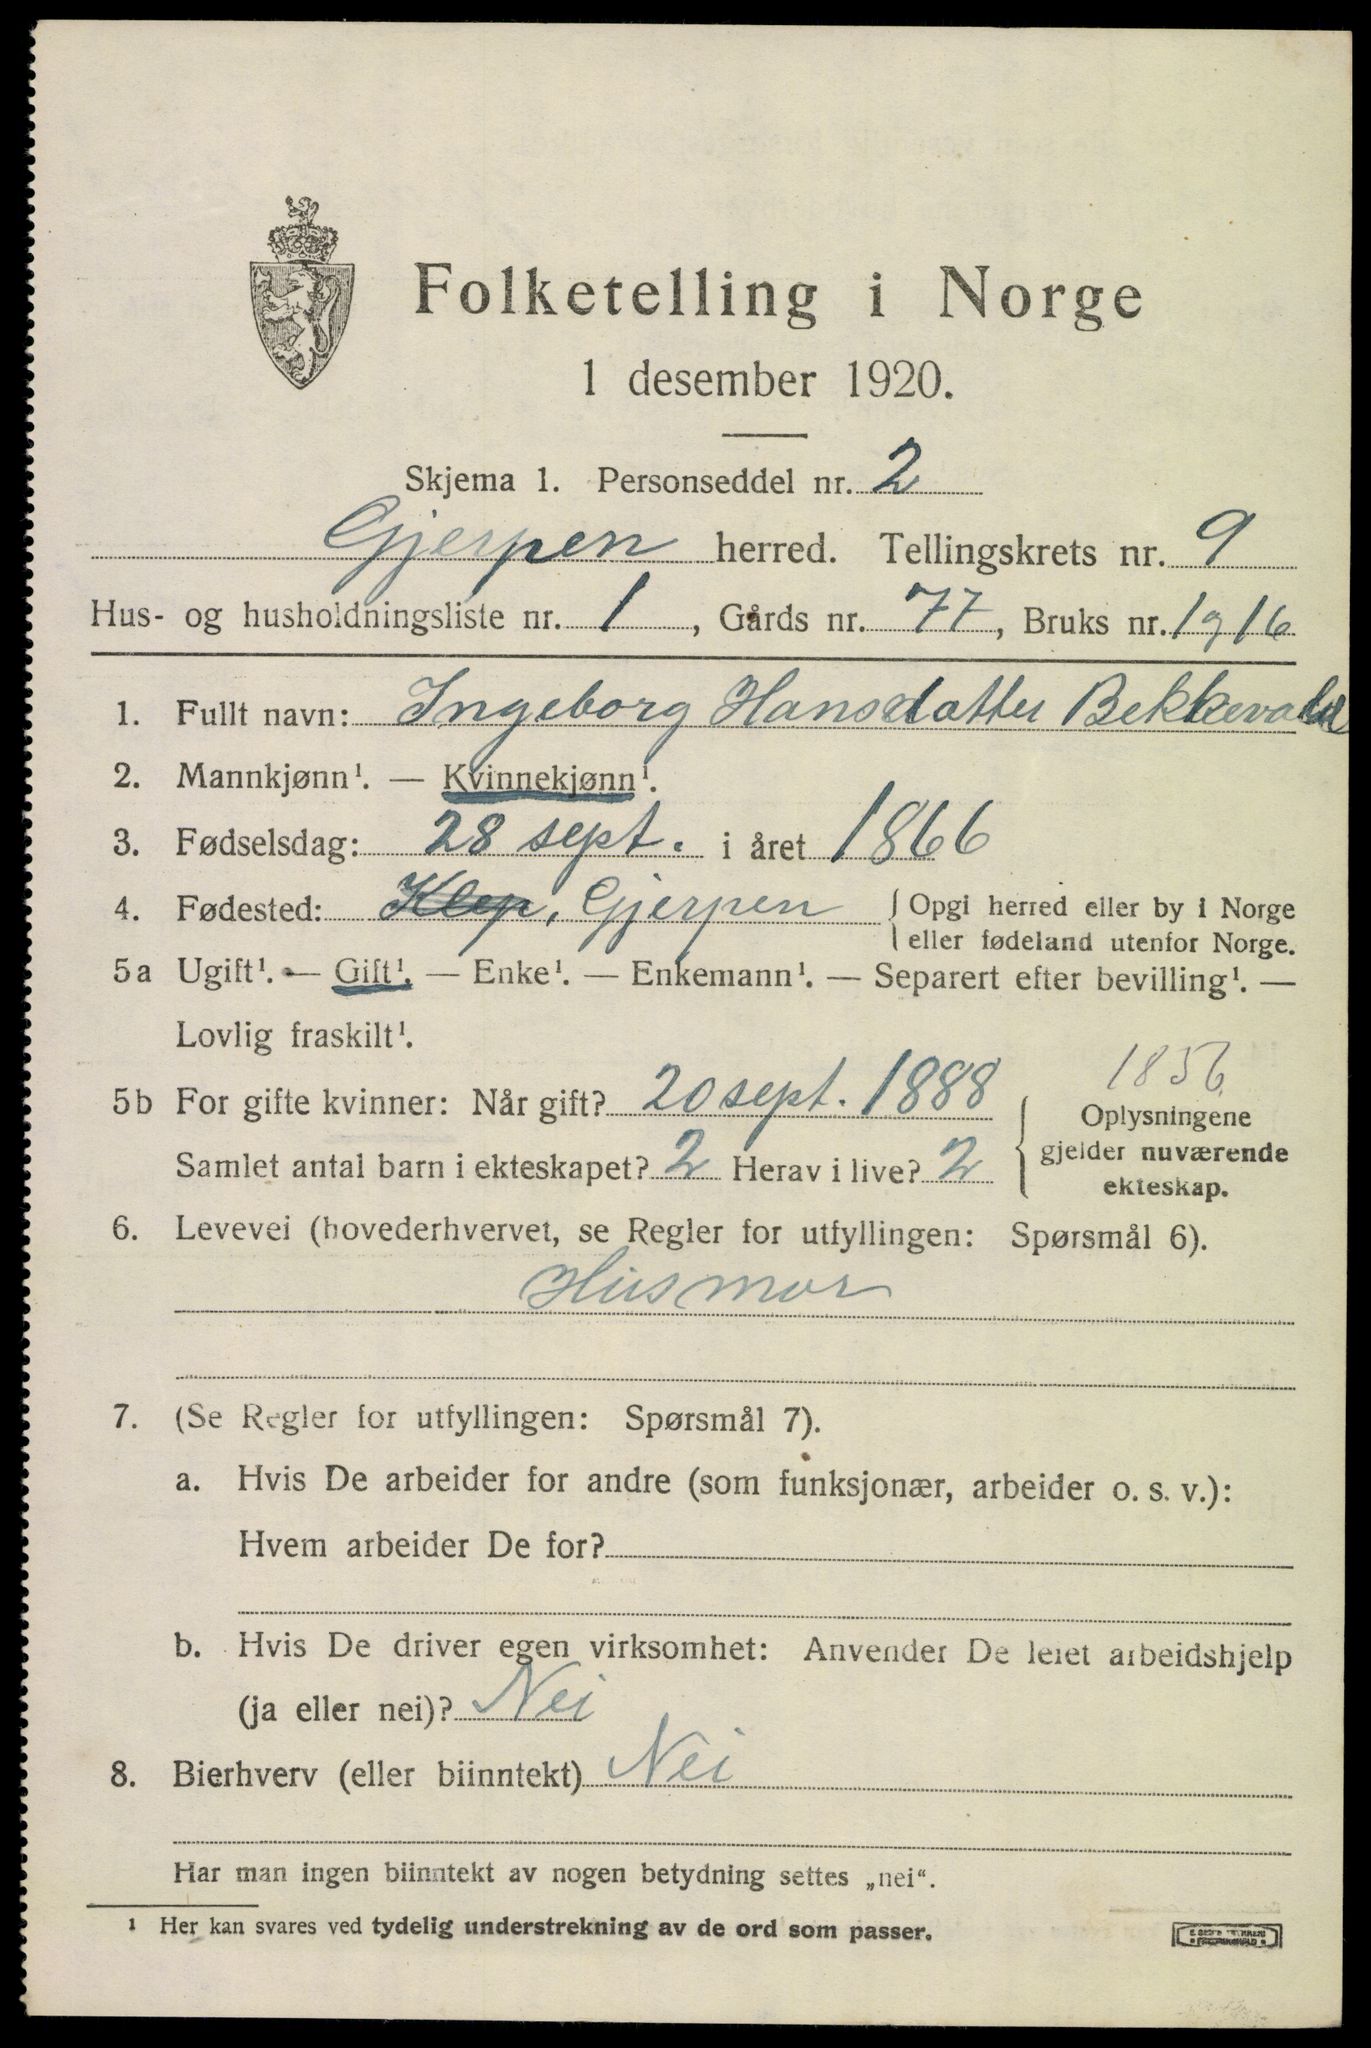 Folketelling i Norge
1 desember 1920.
Skjema 1. Personseddel nr. 2
Gjerpen herred. Tellingskrets nr. 9
Hus- og husholdningsliste nr. 1, Gårds nr. 77, Bruks nr. 1 og 16
1. Fullt navn: Ingeborg Hansdatter Bekkevold
2. Mannkjønn¹. — Kvinnekjønn¹.
3. Fødselsdag: 28 sept. i året 1866
4. Fødested: Klep, Gjerpen { Opgi herred eller by i Norge
eller fødeland utenfor Norge.
5a Ugift¹. — Gift¹. — Enke¹. — Enkemann¹. — Separert efter bevilling¹. —
Lovlig fraskilt¹.
1856
5b For gifte kvinner: Når gift? 20 sept. 1888 { Oplysningene
gjelder nuværende
Samlet antal barn i ekteskapet? 2 Herav i live? 2
ekteskap.
6. Levevei (hovederhvervet, se Regler for utfyllingen: Spørsmål 6).
Husmor
7. (Se Regler for utfyllingen: Spørsmål 7).
a. Hvis De arbeider for andre (som funksjonær, arbeider o. s. v.):
Hvem arbeider De for?
b. Hvis De driver egen virksomhet: Anvender De leiet arbeidshjelp
(ja eller nei)? Nei
8. Bierhverv (eller biinntekt) Nei
Har man ingen biinntekt av nogen betydning settes „nei“.
¹ Her kan svares ved tydelig understrekning av de ord som passer.